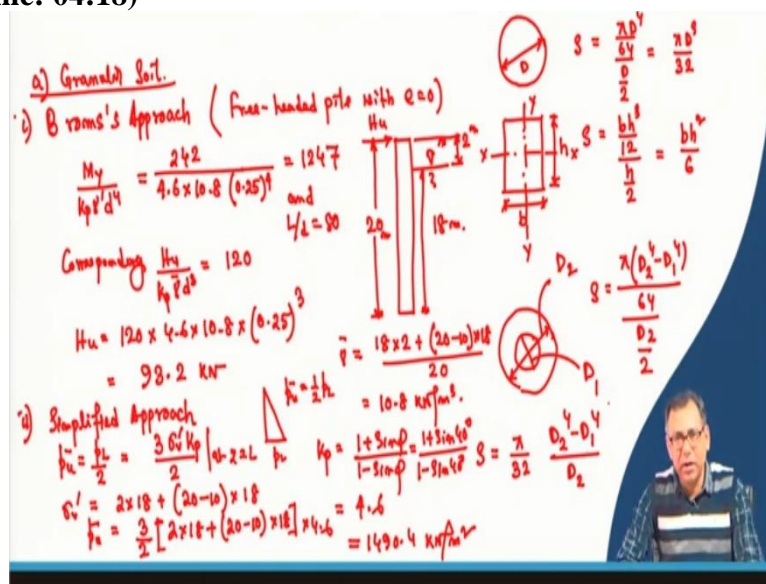 a) Granular Soil.
i) Broms's Approach ( Free-headed pile with e=0)
My / Kp γ̄ d⁴ = 242 / 4.6×10.8 (0.25)⁴ = 1247
and
L/d = 80
Corresponding Hu / Kp γ̄ d³ = 120
Hu = 120 × 4.6×10.8×(0.25)³
= 93.2 KN
Hu
2m
20m
18m.
γ̄ = 18×2 + (20-10)×18 / 20
= 10.8 kN/m³.
ii) Simplified Approach
p̄u = pL/2 = 3 σv' Kp / 2 | at z=L
p̄u = 1/2 p
pL
σv' = 2×18 + (20-10)×18
p̄u = 3/2 [2×18 + (20-10)×18] ×4.6
= 1490.4 kN/m²
Kp = 1+Sinφ / 1-Sinφ = 1+Sin40° / 1-Sin40°
= 4.6
D
S = πD⁴/64 / D/2 = πD³/32
Y
X
h
x
b
Y
S = bh³/12 / h/2 = bh²/6
D2
D1
S = π(D2⁴-D1⁴) / 64 / D2/2
S = π/32 D2⁴-D1⁴ / D2